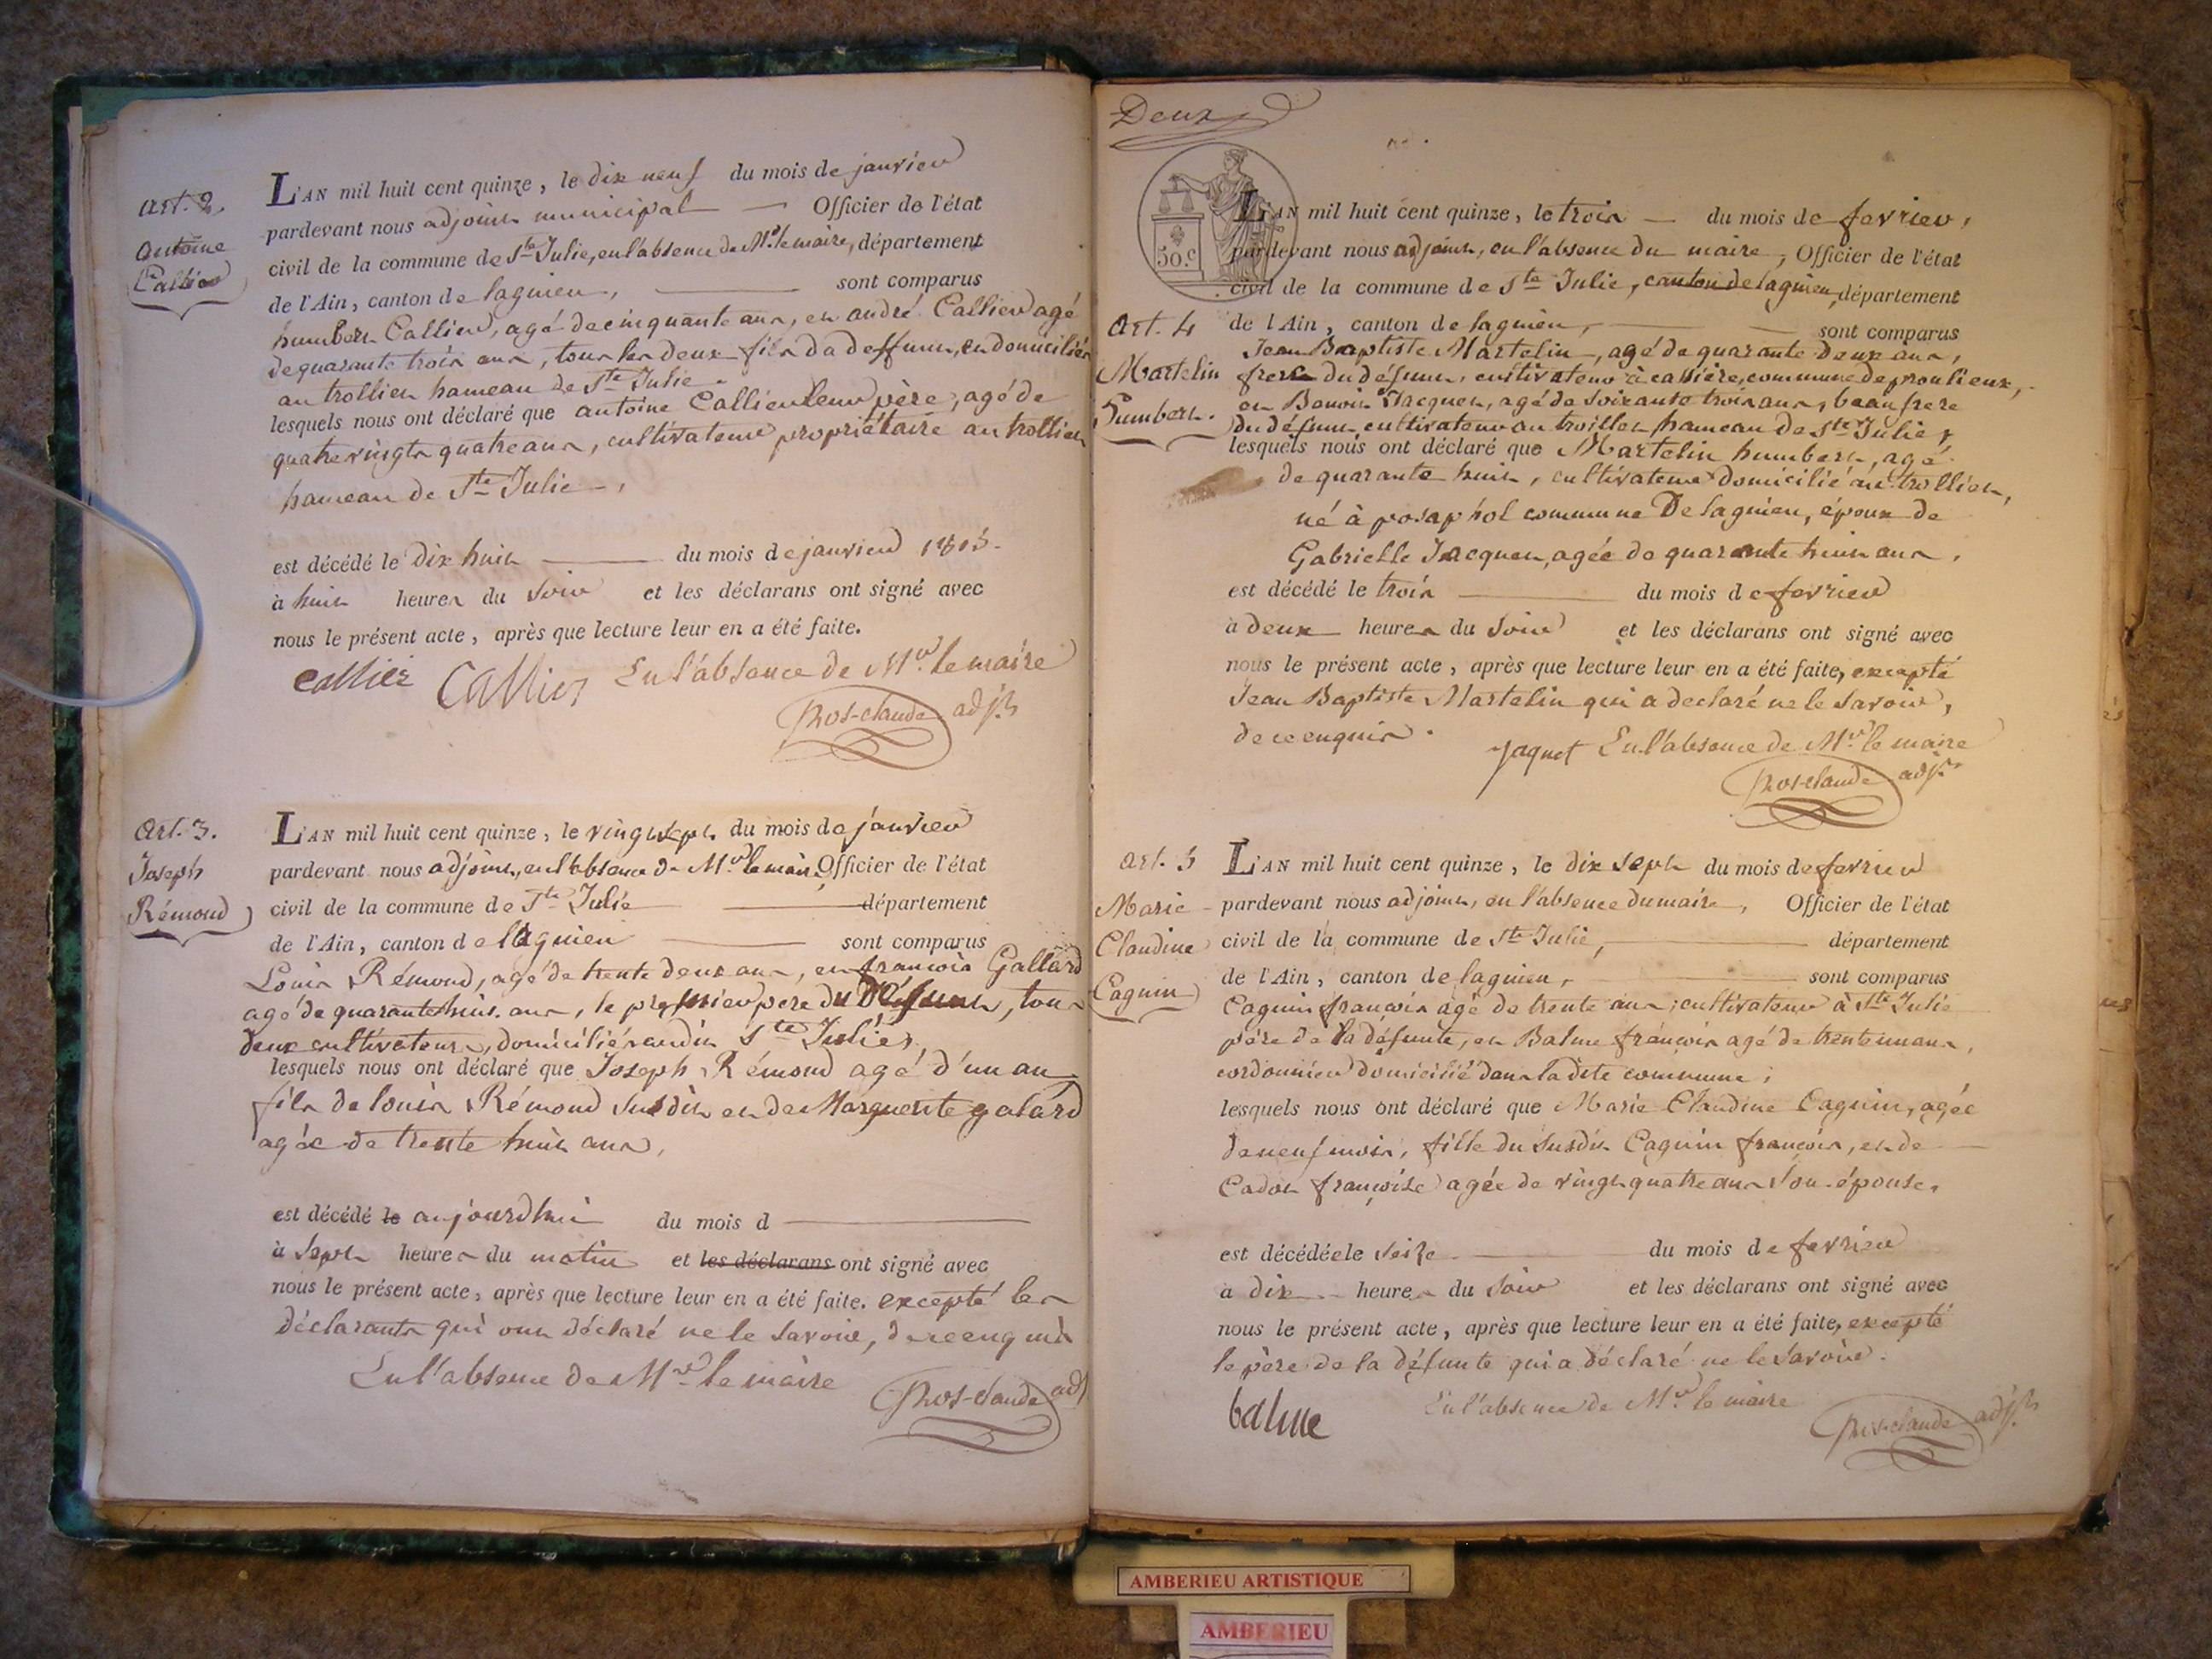 Art. 2.
Antoine
Callier
L'AN mil huit cent quinze, le dix neuf du mois de janvier
pardevant nous adjoint municipal — Officier de l'état
civil de la commune de Ste Julie, en l'absence de Mr. le maire, département
de l'Ain, canton de lagnieu, — sont comparus
humbert Callier, agé de cinquante ans, et andré Callier agé
de quarante trois ans, tous les deux fils du deffunt, et domiciliés
au trollier hameau de Ste Julie.
lesquels nous ont déclaré que antoine Callier leur père, agé de
quatre vingts quatre ans, cultivateur propriétaire au trollier
hameau de Ste Julie,
est décédé le dix huit — du mois de janvier 1815.
à huit heures du soir et les déclarans ont signé avec
nous le présent acte, après que lecture leur en a été faite.
Callier Callier En l'absence de Mr. le maire
Thos-claude adjt
Art. 3.
Joseph
Rémond
L'AN mil huit cent quinze, le vingt sept du mois de janvier
pardevant nous adjoint, en l'absence de Mr. le maire, Officier de l'état
civil de la commune de Ste Julie — département
de l'Ain, canton de lagnieu — sont comparus
Louis Rémond, agé de trente deux ans, et françois Gallard
agé de quarante huit ans, le premier pere du Défunt, tous
deux cultivateurs, domiciliés audit Ste Julie,
lesquels nous ont déclaré que Joseph Rémond agé d'un an
fils de louis Rémond susdit et de Marguerite galard
agée de trente huit ans,
est décédé le aujourdhui du mois d —
à sept heures du matin et les déclarans ont signé avec
nous le présent acte, après que lecture leur en a été faite. excepté les
déclarants qui ont déclaré ne le savoir, de ce enquis
En l'absence de Mr le maire
Thos-claude adj
Deux
50.c
Art. 4
Martelin
humbert.
L'AN mil huit cent quinze, le trois — du mois de fevrier,
pardevant nous adjoint, en l'absence du maire, Officier de l'état
civil de la commune de Ste Julie, canton de lagnieu, département
de l'Ain, canton de lagnieu, — sont comparus
Jean Baptiste Martelin, agé de quarante deux ans,
frere du défunt, cultivateur à cassière, commune de proulieux,
et Benoit Jacquet, agé de soixante trois ans, beaufrere
du défunt cultivateur au trollier hameau de Ste Julie,
lesquels nous ont déclaré que Martelin humbert, agé
de quarante huit, cultivateur domicilié au trollier,
né à posaphol commune De lagnieu, époux de
Gabrielle Jacquet, agée de quarante huit ans,
est décédé le trois — du mois de fevrier
à deux heures du soir et les déclarans ont signé avec
nous le présent acte, après que lecture leur en a été faite, excepté
Jean Baptiste Martelin qui a declaré ne le savoir,
de ce enquis.
Jaquet En l'absence de Mr. le maire
Thos-claude adjt
Art. 5
Marie
Claudine
Caguin
L'AN mil huit cent quinze, le dix sept du mois de fevrier
pardevant nous adjoint, en l'absence du maire, Officier de l'état
civil de la commune de Ste Julie, — département
de l'Ain, canton de lagnieu, — sont comparus
Caguin françois agé de trente ans, cultivateur à Ste Julie
père de la défunte, et Balme françois agé de trente un ans,
cordonnier domicilié dans la dite commune;
lesquels nous ont déclaré que Marie Claudine Caguin, agée
de neuf mois, fille du susdit Caguin françois, et de —
Cadot françoise agée de vingt quatre ans son épouse,
est décédée le seize — du mois de fevrier
à dix heures du soir et les déclarans ont signé avec
nous le présent acte, après que lecture leur en a été faite, excepté
le père de la défunte qui a déclaré ne le savoir.
balme En l'absence de Mr. le maire
Thos-claude adjt
AMBERIEU ARTISTIQUE
AMBERIEU